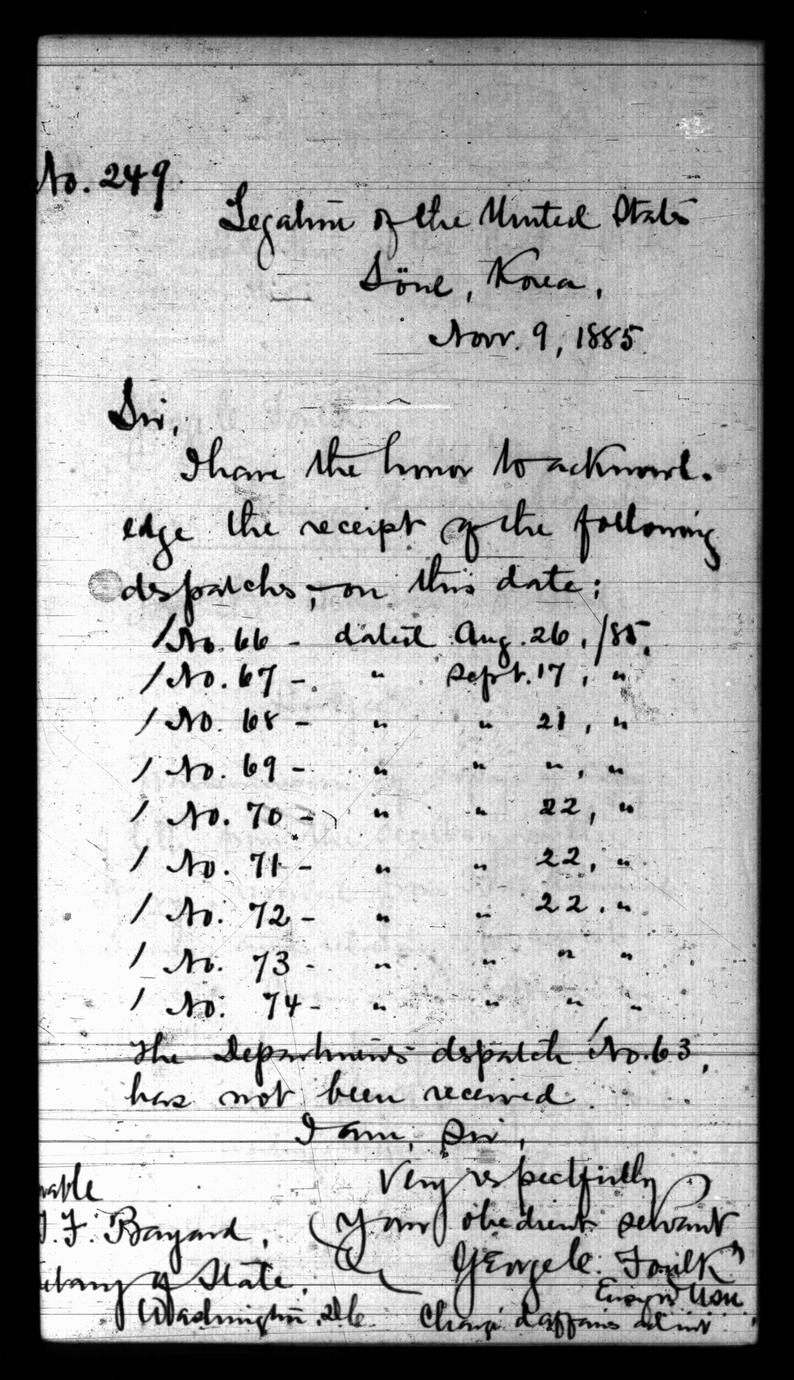 No. 249
Legation of the United States
Söul, Korea,
Nov. 9, 1885.
Sir,
I have the honor to acknowl-
edge the receipt of the following
dispatches, - on this date:
/ No. 66 - dated Aug. 26, /85.
/ No. 67 - " Sept. 17, "
/ No. 68 - " " 21, "
/ No. 69 - " " ", "
/ No. 70 - " " 22, "
/ No. 71 - " " 22, "
/ No. 72 - " " 22, "
/ No. 73 - " " " "
/ No. 74 - " " " "
The Department's dispatch No. 63,
has not been received.
I am, Sir,
Very respectfully
Your obedient servant
George C. Foulk
Ensign USN
Chargé d'affaires ad int
rable
T. F. Bayard,
etary of State,
Washington, D.C.